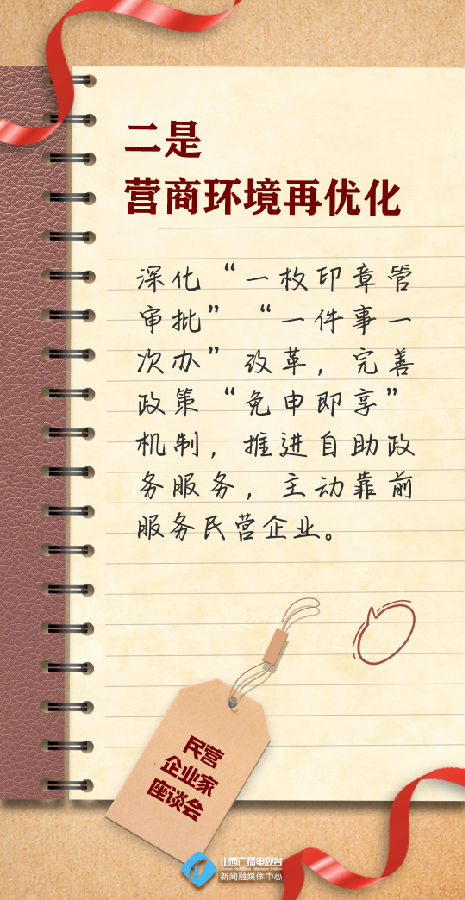 二是
营商环境再优化
深化“一枚印章管
审批”“一件事一
次办”改革，完善
政策“免申即享”
机制，推进自助政
务服务，主动靠前
服务民营企业。
民营
企业家
座谈会
山西广播电视台
新闻融媒体中心